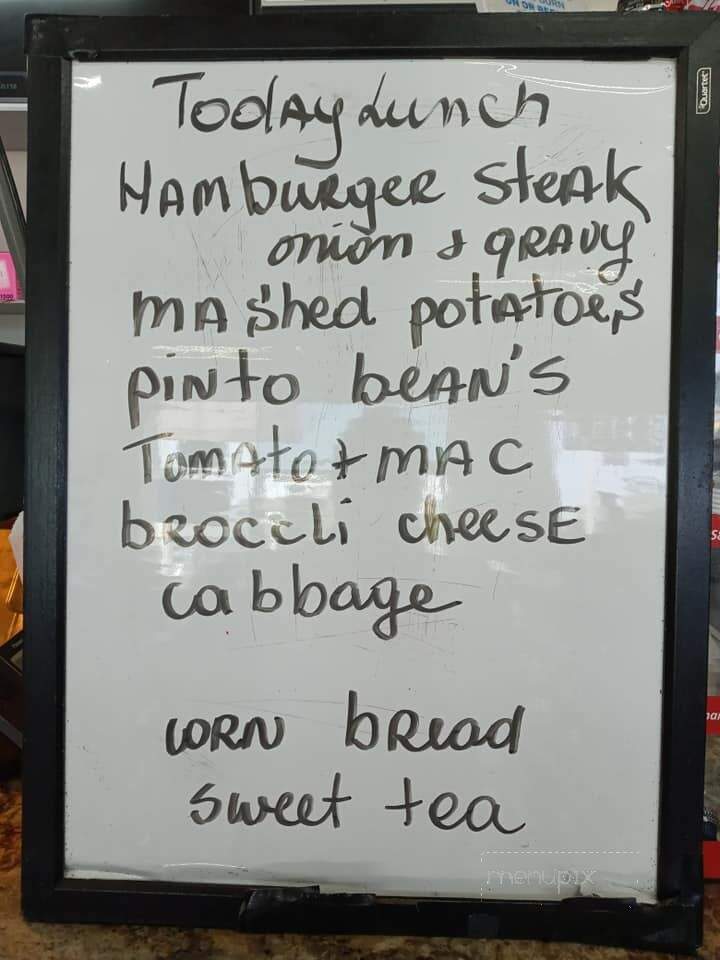 Today Lunch
HAMburgER SteAK
onion & gRAvy
MAShed potAtoes
piNto beAN'S
TomAto + MAC
bRoccLi cheeSE
cabbage
coRN bread
sweet tea
menupix
Quartet